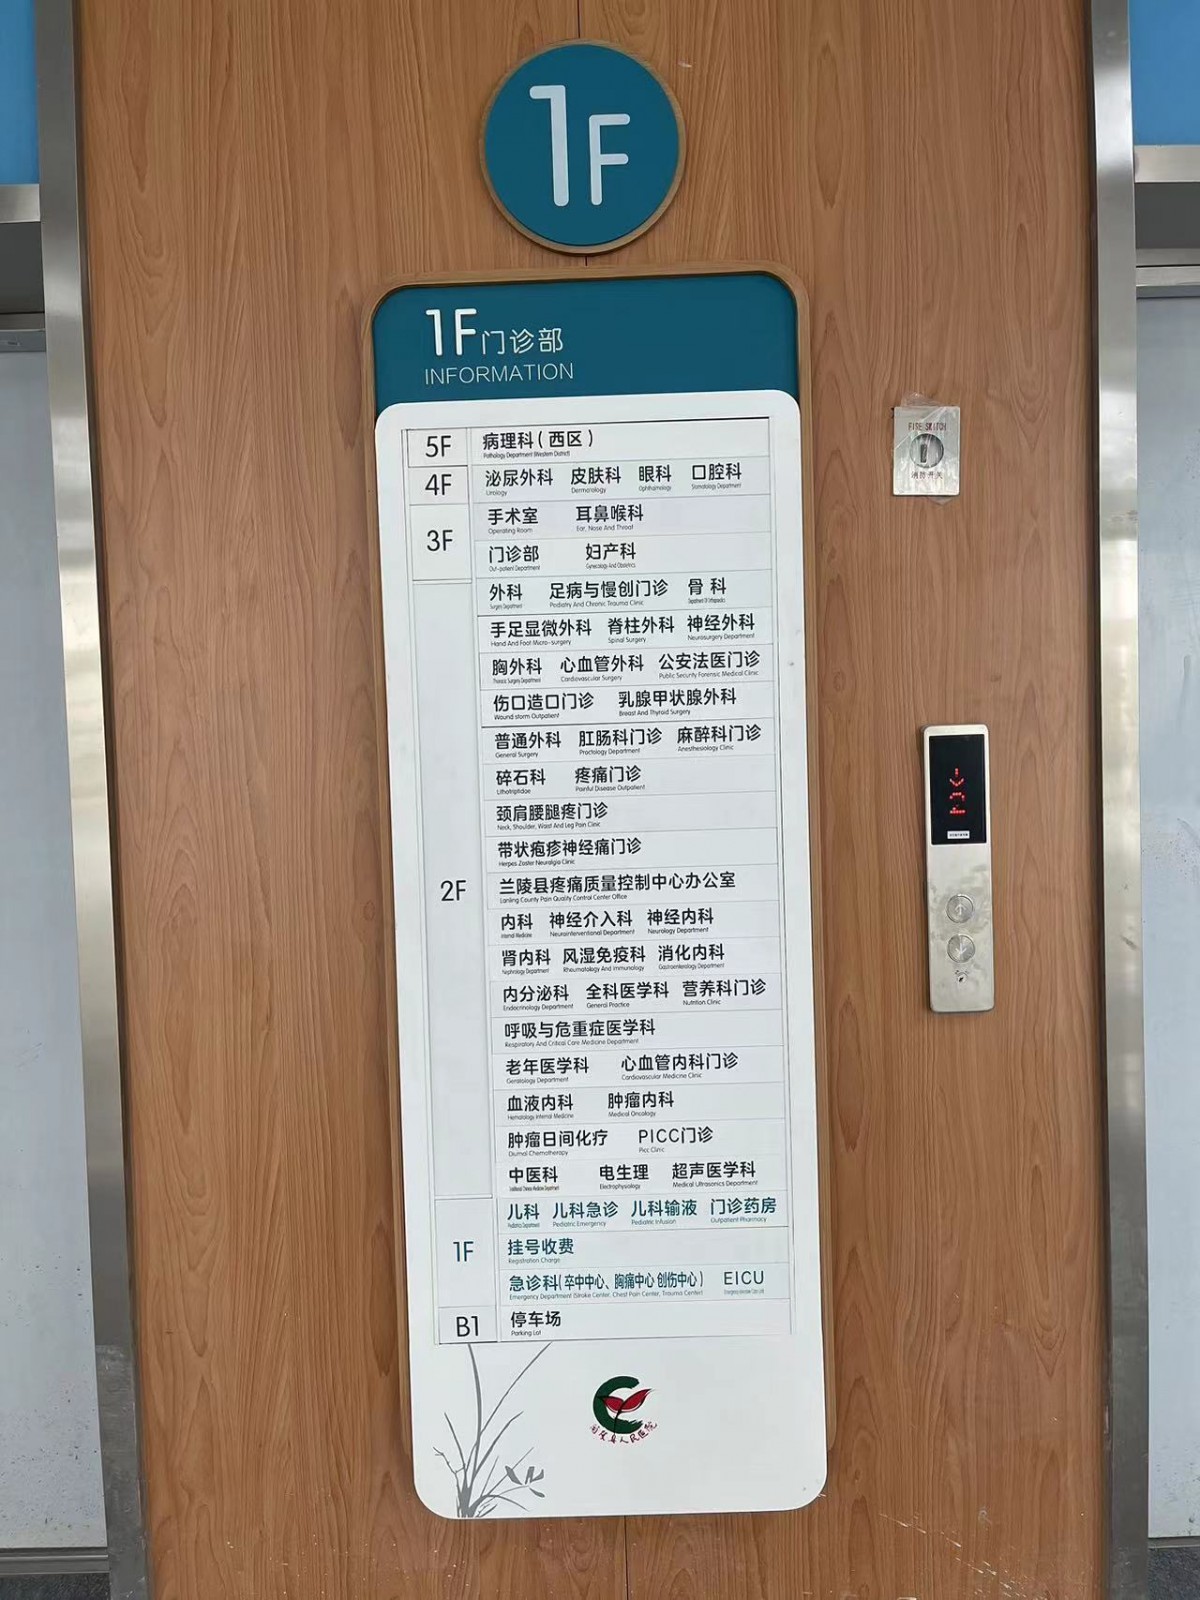 1F
1F门诊部
INFORMATION
5F 病理科（西区）
Pathology Department (Western District)
4F 泌尿外科 皮肤科 眼科 口腔科
Urology Dermatology Ophthalmology Stomatology Department
3F 手术室 耳鼻喉科
Operating Room Ear, Nose And Throat
门诊部 妇产科
Out-patient Department Gynecology And Obstetrics
2F 外科 足病与慢创门诊 骨科
Surgery Department Podiatry And Chronic Trauma Clinic Department Of Orthopedics
手足显微外科 脊柱外科 神经外科
Hand And Foot Micro-surgery Spinal Surgery Neurosurgery Department
胸外科 心血管外科 公安法医门诊
Thoracic Surgery Department Cardiovascular Surgery Public Security Forensic Medical Clinic
伤口造口门诊 乳腺甲状腺外科
Wound storm Outpatient Breast And Thyroid Surgery
普通外科 肛肠科门诊 麻醉科门诊
General Surgery Proctology Department Anesthesiology Clinic
碎石科 疼痛门诊
Lithotriptidae Painful Disease Outpatient
颈肩腰腿疼门诊
Neck, Shoulder, Waist And Leg Pain Clinic
带状疱疹神经痛门诊
Herpes Zoster Neuralgia Clinic
兰陵县疼痛质量控制中心办公室
Lanling County Pain Quality Control Center Office
内科 神经介入科 神经内科
Internal Medicine Neurointerventional Department Neurology Department
肾内科 风湿免疫科 消化内科
Nephrology Department Rheumatology And Immunology Gastroenterology Department
内分泌科 全科医学科 营养科门诊
Endocrinology Department General Practice Nutrition Clinic
呼吸与危重症医学科
Respiratory And Critical Care Medicine Department
老年医学科 心血管内科门诊
Geratology Department Cardiovascular Medicine Clinic
血液内科 肿瘤内科
Hematology Internal Medicine Medical Oncology
肿瘤日间化疗 PICC门诊
Diurnal Chemotherapy Picc Clinic
中医科 电生理 超声医学科
Traditional Chinese Medicine Department Electrophysiology Medical Ultrasonics Department
1F 儿科 儿科急诊 儿科输液 门诊药房
Pediatrics Department Pediatric Emergency Pediatric Infusion Outpatient Pharmacy
挂号收费
Registration Charge
急诊科（卒中中心、胸痛中心 创伤中心） EICU
Emergency Department (Stroke Center, Chest Pain Center, Trauma Center)
B1 停车场
Parking Lot
FIRE SWITCH
消防开关